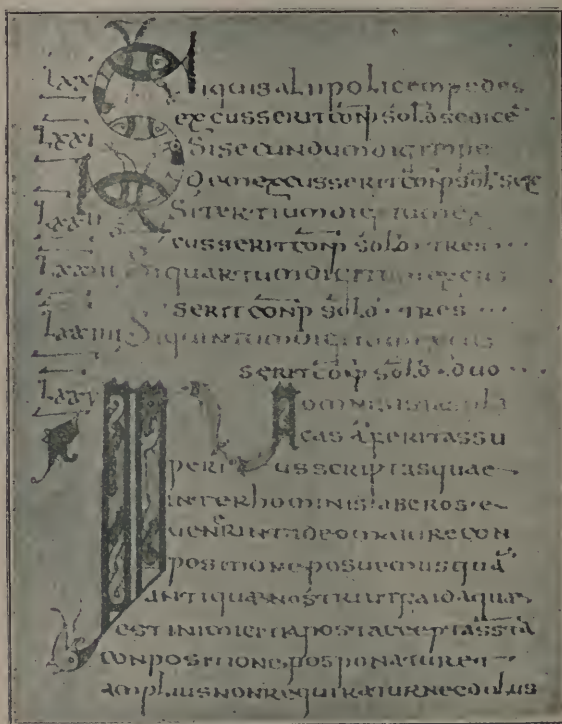 Lxx Siquis alii policem pedes
excusserit conp sold sedice
Lxxi Si secundum digitum pe
dem excusserit conp sol sex
Lxxii Si tertium digitum ex
cusserit conp sold · tres · · ·
Lxxiii Si quartum digitum excus
serit conp sold · tres · · ·
Lxxiiii Si quintum digitum excus
serit conp sold · duo · · ·
Lxxv In omnis istas pla
cas feritas su
peri us scriptas quae
inter hominis liberos · e
venerint ideo maiure con
positione posuemus quā
antiquae nostri ut faida quae
est inimicitia post acceptassta
conpositione posponatur et
amplius non requiratur nec dolus